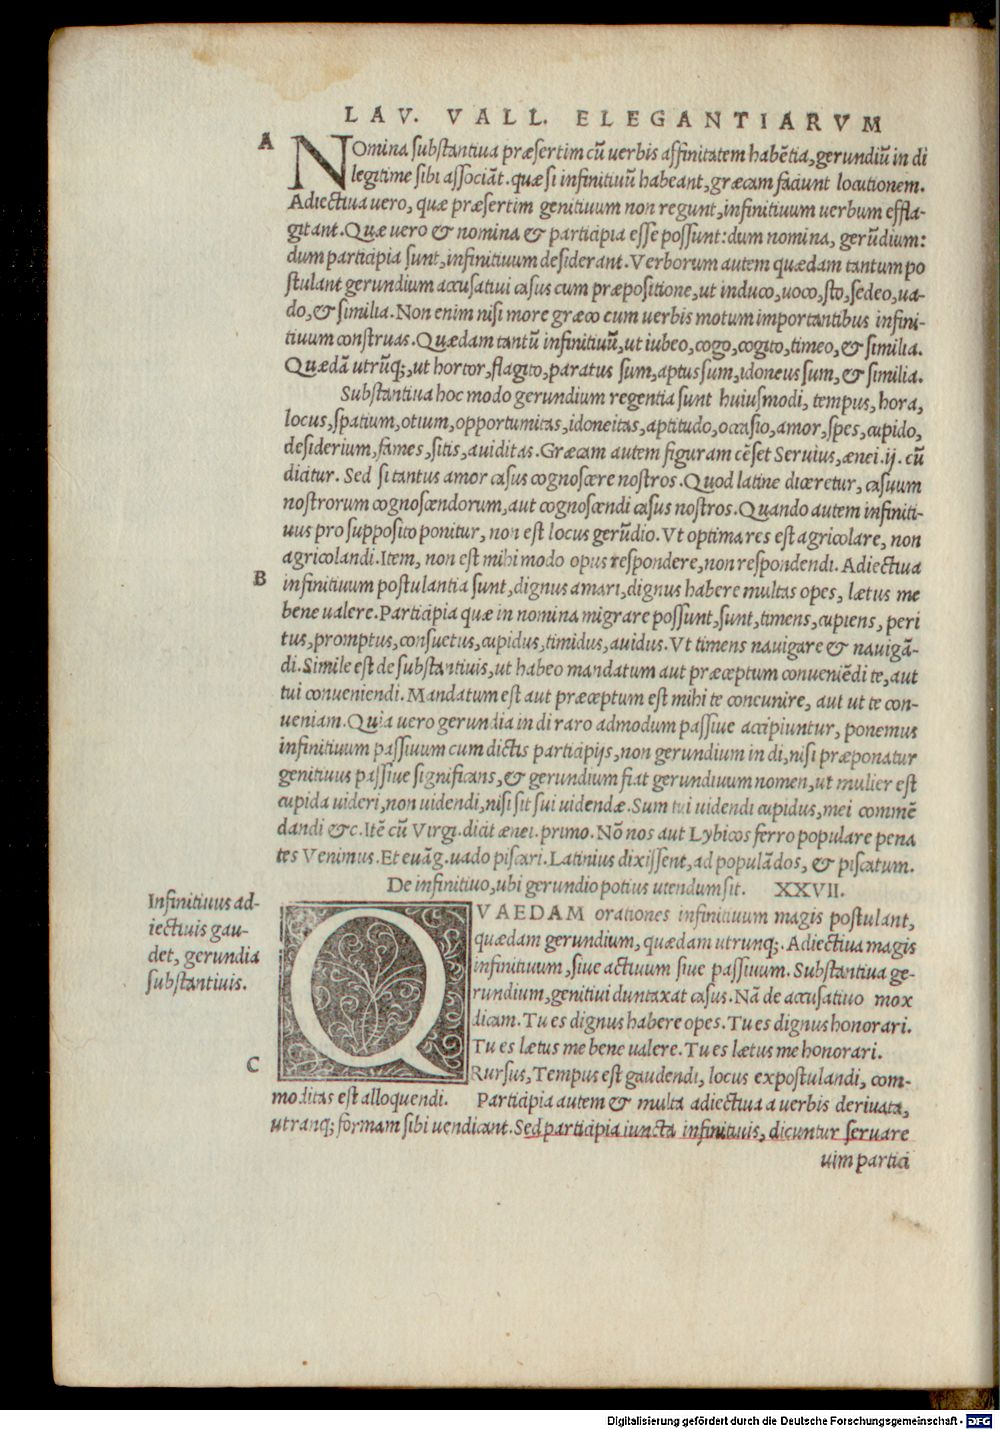 LAV. VALL. ELEGANTIARVM
A
NOmina substantiua præsertim cũ uerbis affinitatem habẽtia, gerundiũ in di
legitime sibi associãt. quæ si infinitiuũ habeant, græcam faciunt locutionem.
Adiectiua uero, quæ præsertim genitiuum non regunt, infinitiuum uerbum effla-
gitant. Quæ uero & nomina & participia esse possunt: dum nomina, gerũdium:
dum participia sunt, infinitiuum desiderant. Verborum autem quædam tantum po
stulant gerundium accusatiui casus cum præpositione, ut induco, uoco, sto, sedeo, ua-
do, & similia. Non enim nisi more græco cum uerbis motum importantibus infini-
tiuum construas. Quædam tantũ infinitiuũ, ut iubeo, cogo, cogito, timeo, & similia.
Quædã utrũq;, ut hortor, flagito, paratus sum, aptus sum, idoneus sum, & similia.
Substantiua hoc modo gerundium regentia sunt huiusmodi, tempus, hora,
locus, spatium, otium, opportunitas, idoneitas, aptitudo, occasio, amor, spes, cupido,
desiderium, fames, sitis, auiditas. Græcam autem figuram cẽset Seruius, ænei. ij. cũ
dicitur. Sed si tantus amor casus cognoscere nostros. Quod latine diceretur, casuum
nostrorum cognoscendorum, aut cognoscendi casus nostros. Quando autem infiniti-
uus pro supposito ponitur, non est locus gerũdio. Vt optima res est agricolare, non
agricolandi. Item, non est mihi modo opus respondere, non respondendi. Adiectiua
B
infinitiuum postulantia sunt, dignus amari, dignus habere multas opes, lætus me
bene ualere. Participia quæ in nomina migrare possunt, sunt, timens, cupiens, peri
tus, promptus, consuetus, cupidus, timidus, auidus. Vt timens nauigare & nauigã-
di. Simile est de substantiuis, ut habeo mandatum aut præceptum conueniẽdi te, aut
tui conueniendi. Mandatum est aut præceptum est mihi te conuenire, aut ut te con-
ueniam. Quia uero gerundia in di raro admodum passiue accipiuntur, ponemus
infinitiuum passiuum cum dictis participijs, non gerundium in di, nisi præponatur
genitiuus passiue significans, & gerundium fiat gerundiuum nomen, ut mulier est
cupida uideri, non uidendi, nisi sit sui uidendæ. Sum tui uidendi cupidus, mei commẽ
dandi &c. Itẽ cũ Virgi. dicit ænei. primo. Nõ nos aut Lybicos ferro populare pena
tes Venimus. Et euãg. uado piscari. Latinius dixissent, ad populãdos, & piscatum.
De infinitiuo, ubi gerundio potius utendum sit. XXVII.
Infinitiuus ad-
iectiuis gau-
det, gerundia
substantiuis.
QVAEDAM orationes infinitiuum magis postulant,
quædam gerundium, quædam utrunq;. Adiectiua magis
infinitiuum, siue actiuum siue passiuum. Substantiua ge-
rundium, genitiui duntaxat casus. Nã de accusatiuo mox
dicam. Tu es dignus habere opes. Tu es dignus honorari.
Tu es lætus me bene ualere. Tu es lætus me honorari.
C
Rursus, Tempus est gaudendi, locus expostulandi, com-
moditas est alloquendi. Participia autem & multa adiectiua a uerbis deriuata,
utranq; formam sibi uendicant. Sed participia iuncta infinitiuis, dicuntur seruare
uim partici
Digitalisierung gefördert durch die Deutsche Forschungsgemeinschaft - DFG